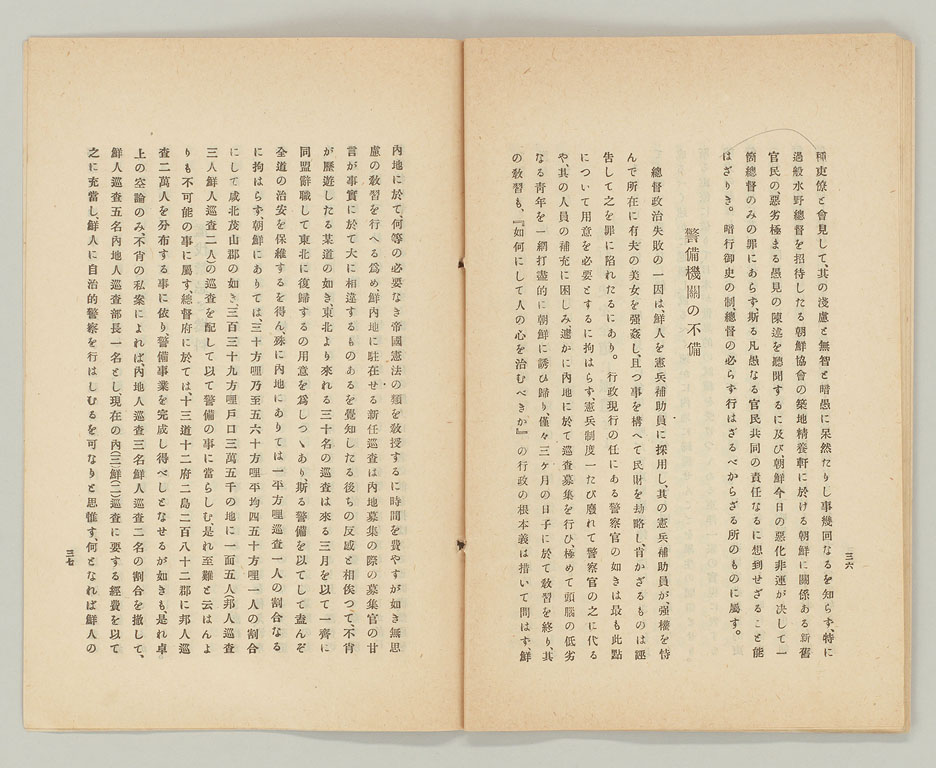 種吏僚と會見して、其の淺慮と無智と暗愚に呆然たりし事幾回なるを知らず、特に
過般水野總督を招待したる朝鮮協會の築地精養軒に於ける朝鮮に關係ある新舊
官民の、惡劣極まる愚見の陳述を聽聞するに及び朝鮮今日の惡化非運が決して一
箇總督のみの罪にあらず、斯る凡愚なる官民共同の責任なるに想到せざること能
はざりき。暗行御史の制總督の必らず行はざるべからざる所のものに屬す。
警備機關の不備
總督政治失敗の一因は、鮮人を憲兵補助員に採用し、其の憲兵補助員が强權を恃
んで所在に有夫の美女を强姦し、且つ事を構へて民財を劫略し、肯かざるものは誣
告して之を罪に陷れたるにあり。行政現行の任にある警察官の如きは最も此點
について用意を必要とするに拘はらず、憲兵制度一たび廢れて警察官の之に代る
や、其の人員の補充に困しみ速かに內地に於て巡査募集を行ひ極めて頭腦の低劣
なる靑年を一網打盡的に朝鮮に誘ひ歸り、僅々三ヶ月の日子に於て敎習を終り、其
の敎習も、『如何にして人の心を治むべきか』の行政の根本義は措いて問はず、鮮
三六
內地に於て何等の必要なき帝國憲法の類を敎授するに時間を費やすが如き無思
慮の敎習を行へる爲め鮮內地に駐在せる新任巡査は內地募集の際の募集官の甘
言が事實に於て大に相違するものあるを覺知したる後ちの反感と相俟つて、不肖
が歷遊したる某道の如き、東北より來れる三十名の巡査は來る三月を以て一齊に
同盟辭職して東北に復歸するの用意を爲しつゝあり、斯る警備を以てして盍んぞ
全道の治安を保維するを得ん、殊に內地にありては一平方哩巡査一人の割合なる
に拘はらず朝鮮にありては、三十方哩乃至五六十方哩平均四五十方哩一人の割合
にして咸北茂山郡の如き、三百三十九方哩戶口三萬五千の地に一面五人(邦人巡査
三人鮮人巡査二人)の巡査を配して以て警備の事に當らしむ、是れ至難と云はんよ
りも不可能の事に屬す、總督府に於ては、十三道十二府二島二百八十二郡に邦人巡
査二萬人を分布する事に依り、警備事業を完成し得べしとなせるが如きも、是れ卓
上の空論のみ、不肖の私案によれば、內地人巡査三名鮮人巡査二名の割合を撤して、
鮮人巡査五名內地人巡査部長一名とし、現在の內(三鮮(二)巡査に要する經費を以て
之に充當し、鮮人に自治的警察を行はしむるを可なりと思惟す、何となれば鮮人の
三七